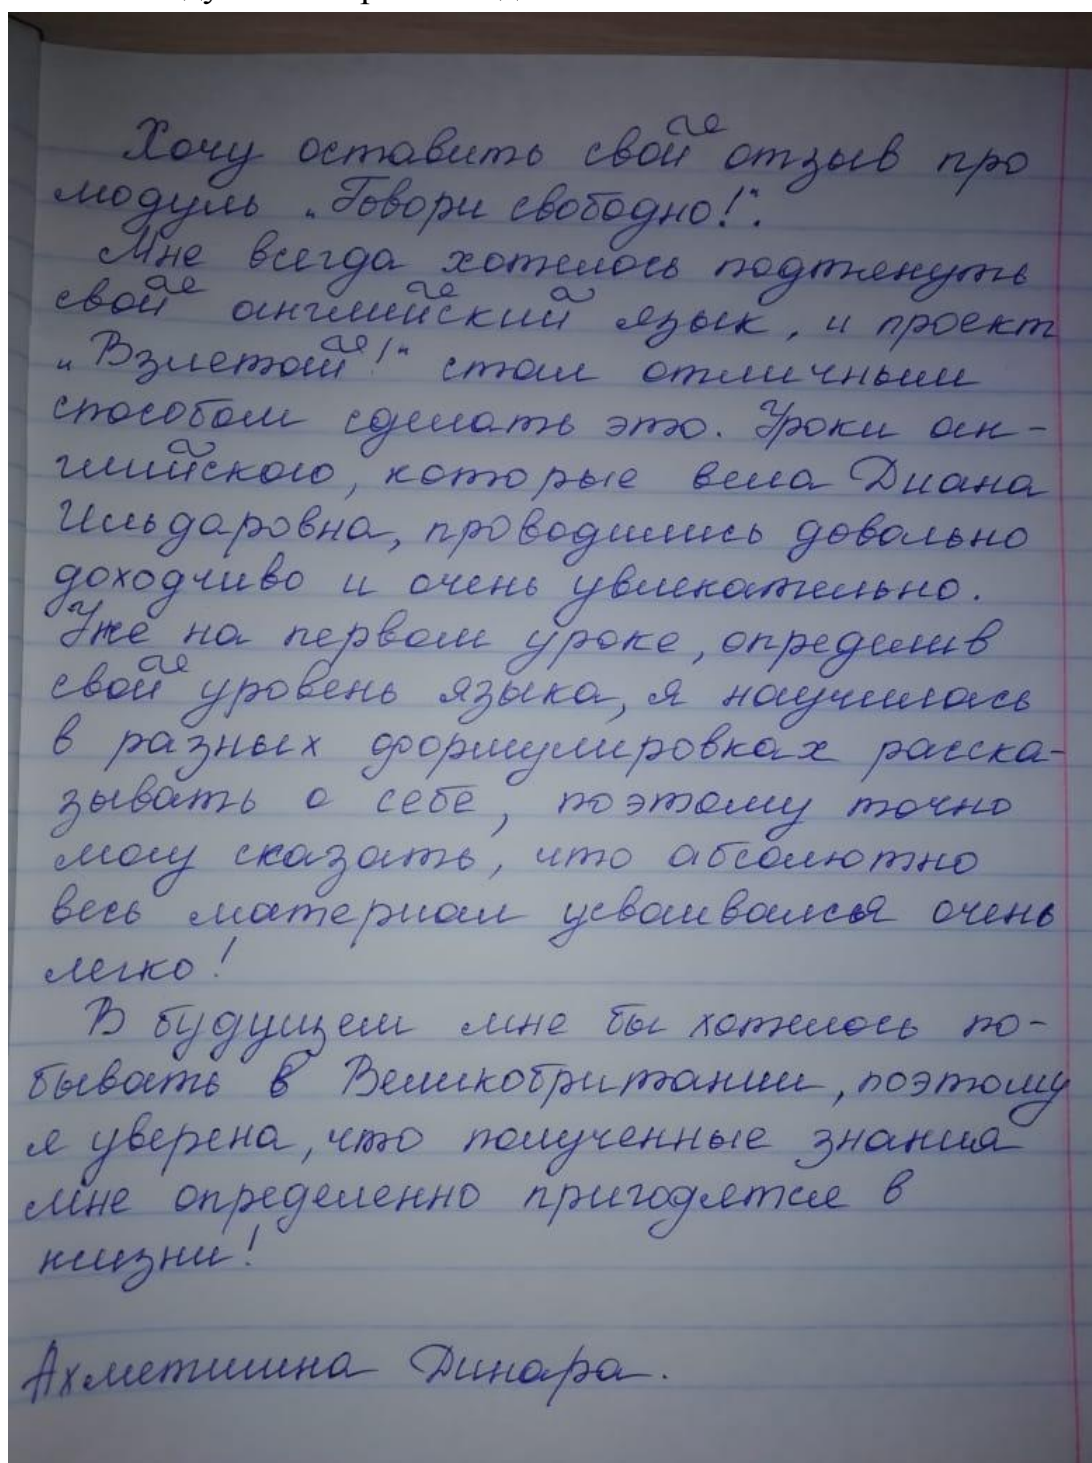 Хочу оставить свой отзыв про
модуль „Говори свободно!".
Мне всегда хотелось подтянуть
свой английский язык, и проект
„Взлетай!" стал отличным
способом сделать это. Уроки ан-
глийского, которые вела Диана
Ильдаровна, проводились довольно
доходчиво и очень увлекательно.
Уже на первом уроке, определив
свой уровень языка, я научилась
в разных формулировках расска-
зывать о себе, поэтому точно
могу сказать, что абсолютно
весь материал усваивался очень
легко!
В будущем мне бы хотелось по-
бывать в Великобритании, поэтому
я уверена, что полученные знания
мне определенно пригодятся в
жизни!
Ахметшина Динара.